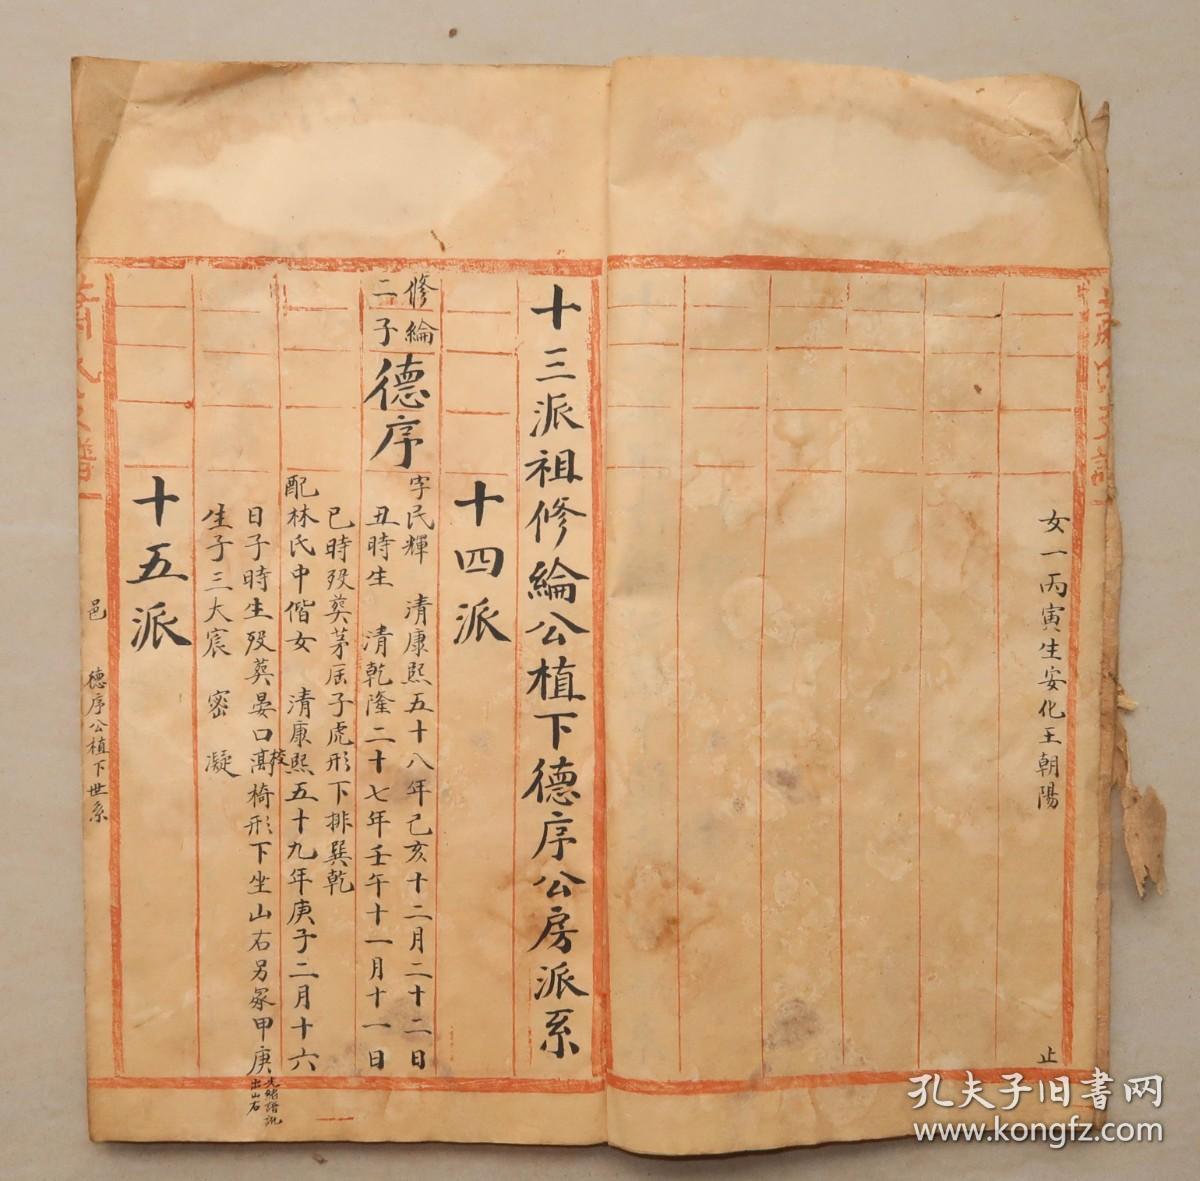 女一丙寅生安化王朝陽
止
十三派祖修綸公植下德序公房派系
十四派
修綸
二子
德序
字民輝 清康熙五十八年己亥十二月二十二日
丑時生 清乾隆二十七年壬午十一月十一日
巳時歿葬茅屋子虎形下排巽乾
配林氏中偕女 清康熙五十九年庚子二月十六
日子時生歿葬晏口萬椅形下坐山右另冢甲庚
生子三大宸 密 凝
十五派
邑 德序公植下世系
孔夫子旧书网
www.kongfz.com